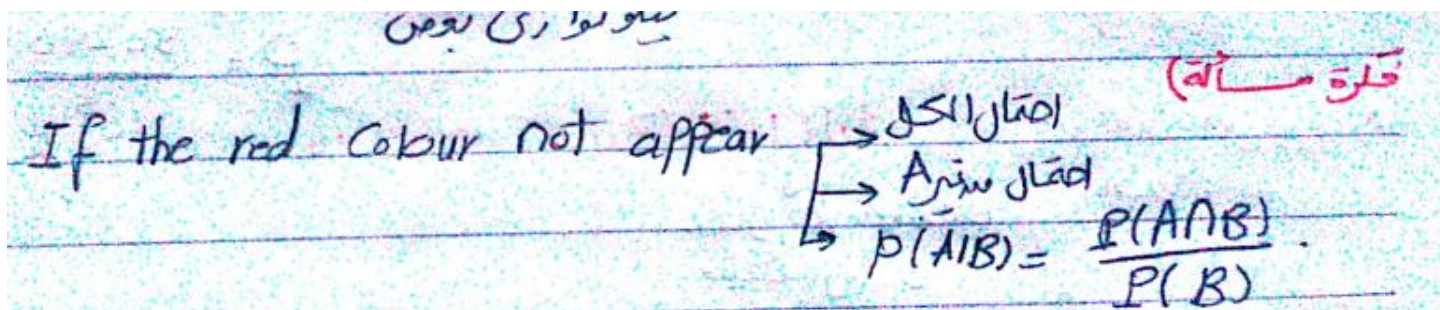 فكرة مسألة)
If the red Colour not appear → احتمال الكل
→ احتمال متغير A
→ P(A|B) = P(A∩B) / P(B) .